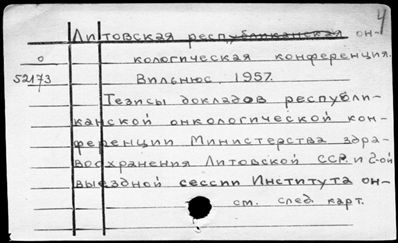 4
Литовская республиканская он-
о кологическая конференция.
52173 Вильнюс, 1957.
Тезисы докладов республи-
канской онкологической кон-
ференции Министерства здра-
воохранения Литовской ССР и 2-ой
выездной сессии Института он-
см. след. карт.